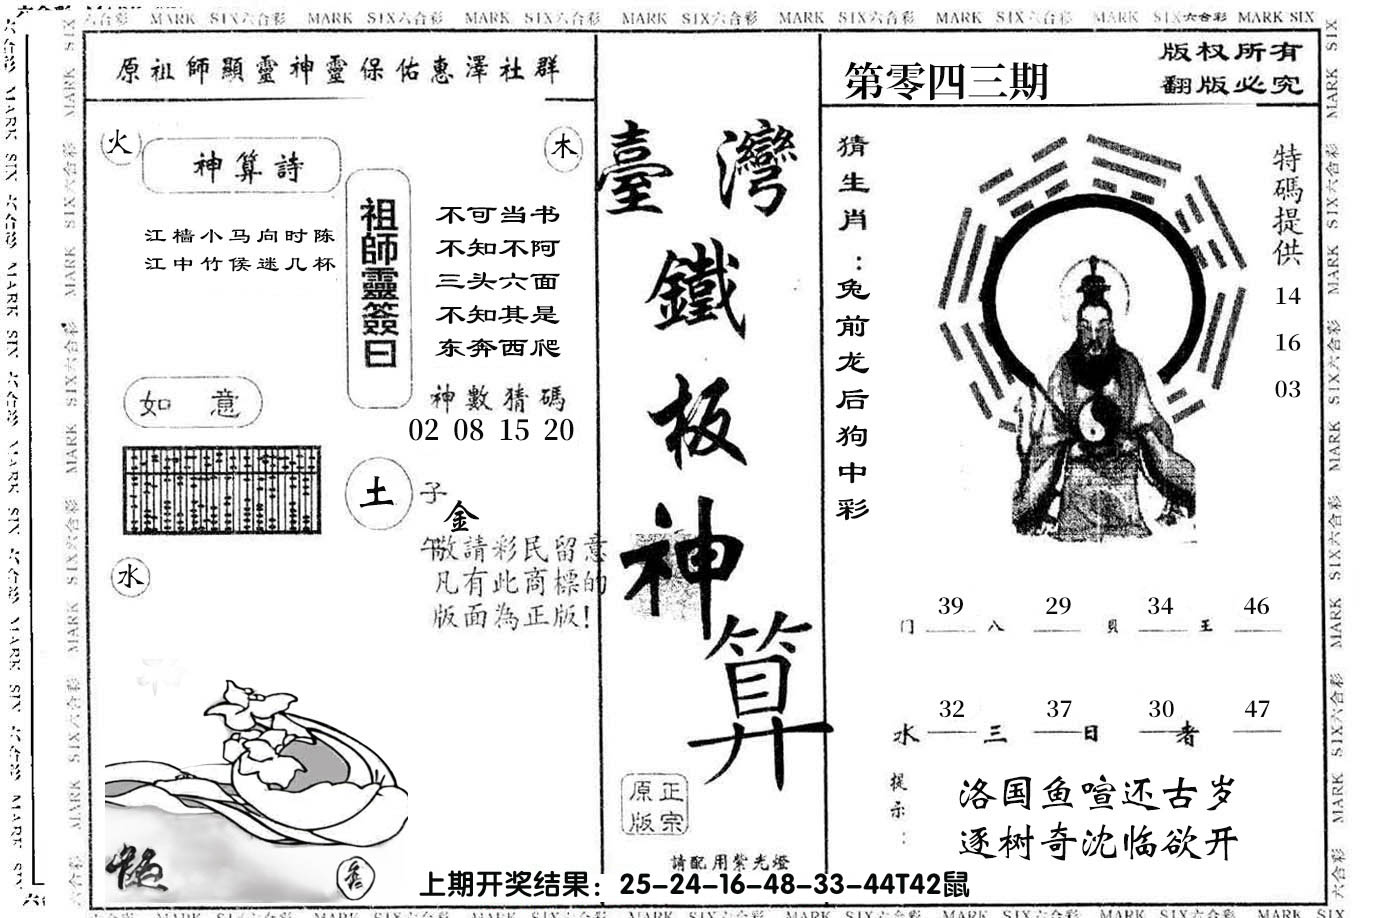 MARK SIX六合彩 MARK SIX六合彩 MARK SIX六合彩 MARK SIX六合彩 MARK SIX六合彩 MARK SIX六合彩 MARK SIX六合彩 MARK SIX
原祖師顯靈神靈保佑惠澤社群
火
神算詩
木
江樯小马向时陈
江中竹侯迷几杯
祖師靈簽曰
不可当书
不知不阿
三头六面
不知其是
东奔西爬
神數猜碼
02 08 15 20
如 意
土
子
金
午
敬請彩民留意
凡有此商標的
版面為正版!
水
臺灣
鐵
板
神
算
原正
版宗
請配用紫光燈
第零四三期
版权所有
翻版必究
猜生肖：兔前龙后狗中彩
特碼提供
14
16
03
39 29 34 46
门 八 貝 王
32 37 30 47
水 三 日 者
提示：
洛国鱼喧还古岁
逐树奇沈临欲开
上期开奖结果：25-24-16-48-33-44T42鼠